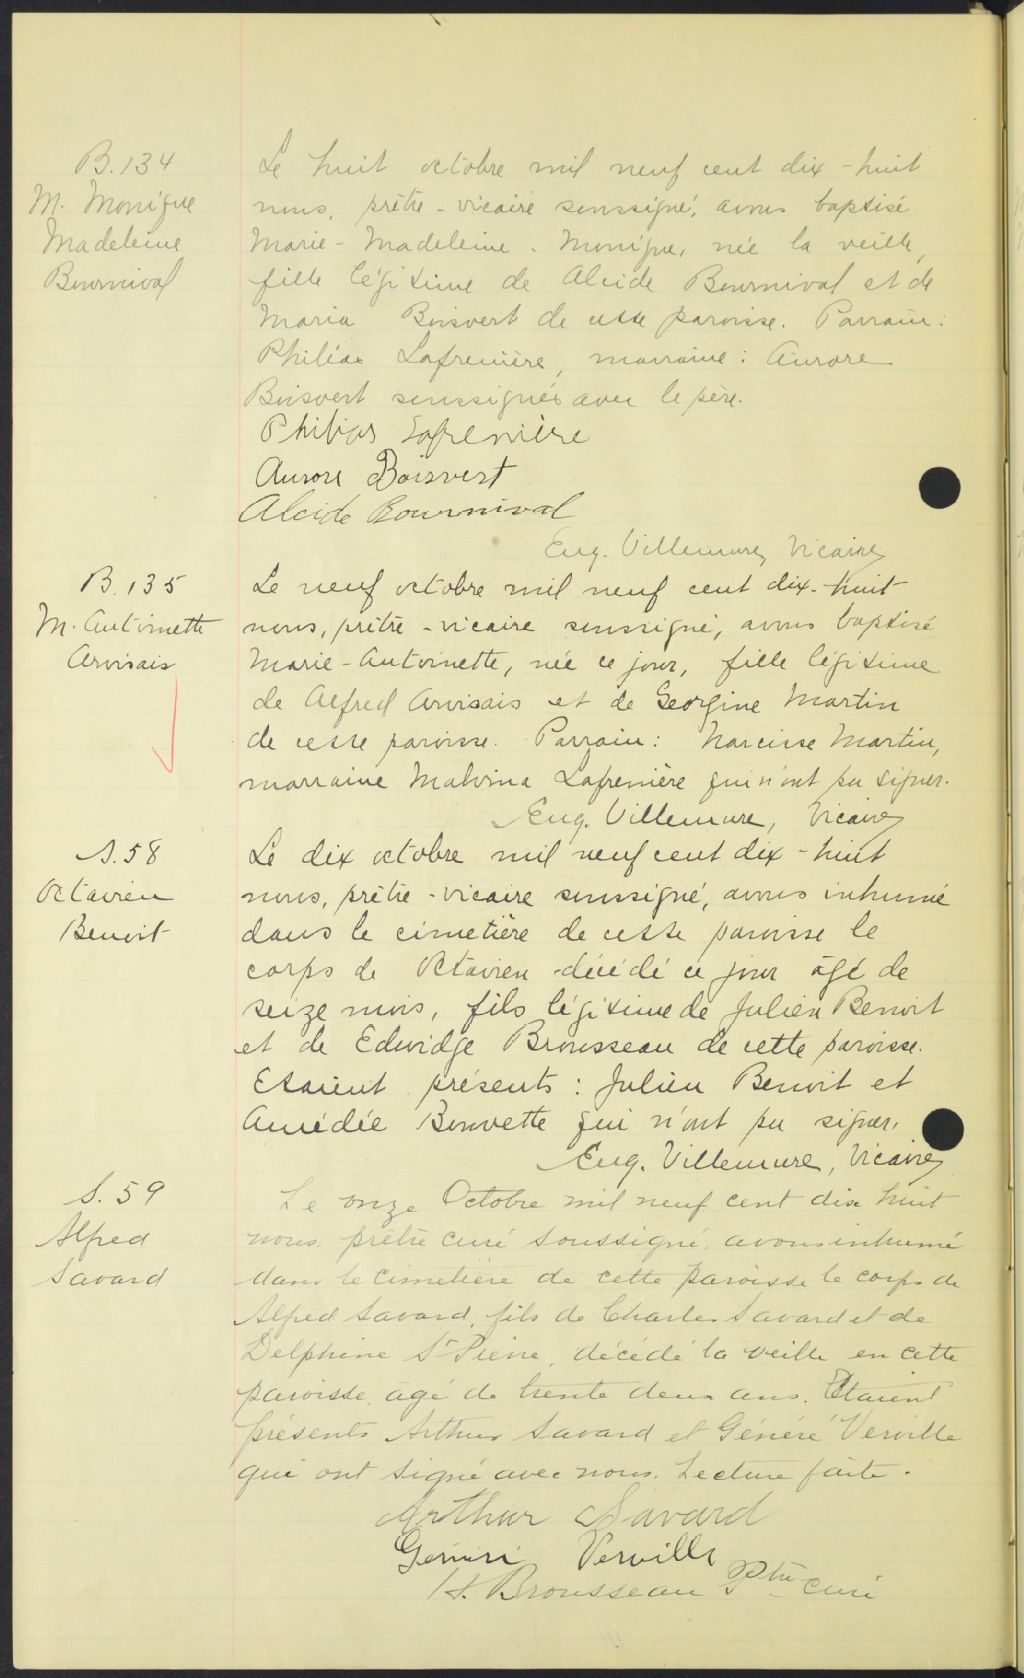 B. 134
M. Monique
Madeleine
Bournival
Le huit octobre mil neuf cent dix-huit
nous, prêtre-vicaire soussigné, avons baptisé
Marie-Madeleine-Monique, née la veille,
fille légitime de Alcide Bournival et de
Maria Boisvert de cette paroisse. Parrain:
Philéas Lafrenière, marraine: Aurore
Boisvert soussignés avec le père.
Philias Lafrenière
Aurore Boisvert
Alcide Bournival
Eug. Villemure, Vicaire
B. 135
M. Antoinette
Arvisais
Le neuf octobre mil neuf cent dix-huit
nous, prêtre-vicaire soussigné, avons baptisé
Marie-Antoinette, née ce jour, fille légitime
de Alfred Arvisais et de Georgine Martin
de cette paroisse. Parrain: Narcisse Martin,
marraine Malvina Lafrenière qui n'ont pu signer.
Eug. Villemure, Vicaire
S. 58
Octavien
Benoit
Le dix octobre mil neuf cent dix-huit
nous, prêtre-vicaire soussigné, avons inhumé
dans le cimetière de cette paroisse le
corps de Octavien décédé ce jour âgé de
seize mois, fils légitime de Julien Benoit
et de Edwidge Brousseau de cette paroisse.
Etaient présents: Julien Benoit et
Amédée Bouvette qui n'ont pu signer.
Eug. Villemure, Vicaire
S. 59
Alfred
Savard
Le onze Octobre mil neuf cent dix huit
nous prêtre curé soussigné, avons inhumé
dans le cimetière de cette paroisse le corps de
Alfred Savard, fils de Charles Savard et de
Delphine St Pierre, décédé la veille en cette
paroisse, âgé de trente deux ans. Etaient
présents Arthur Savard et Généré Verville
qui ont signé avec nous. Lecture faite.
Arthur Savard
Généré Verville
H. Brousseau Ptre curé